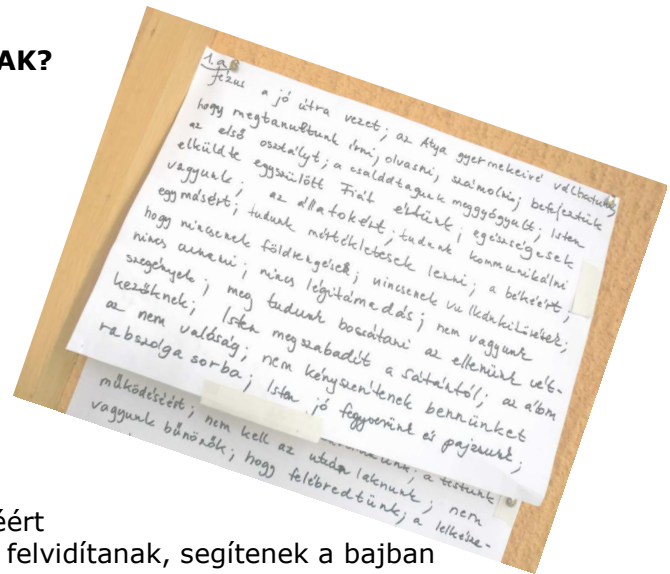 AK?
1.a
Jézus a jó útra vezet; az Atya gyermekeivé válhatunk;
hogy megtanultunk írni, olvasni, számolni; befejeztük
az első osztályt; a családtagunk meggyógyult; Isten
elküldte egyszülött Fiát értünk; egészségesek
vagyunk; az állatokért; tudunk kommunikálni
egymásért; tudunk mértékletesek lenni; a békéért;
hogy nincsenek földrengések; nincsenek vulkánkitörések;
nincs cunami; nincs légitámadás; nem vagyunk
szegények; meg tudunk bocsátani az ellenünk vét-
kezőknek; Isten megszabadít a sátántól; az álom
az nem valóság; nem kényszerítenek bennünket
rabszolga sorba; Isten jó fegyverünk és pajzsunk;
a testünk
működéséért; nem kell az utcán laknunk; nem
vagyunk bűnözők; hogy felébredtünk; a
éért
felvidítanak, segítenek a bajban